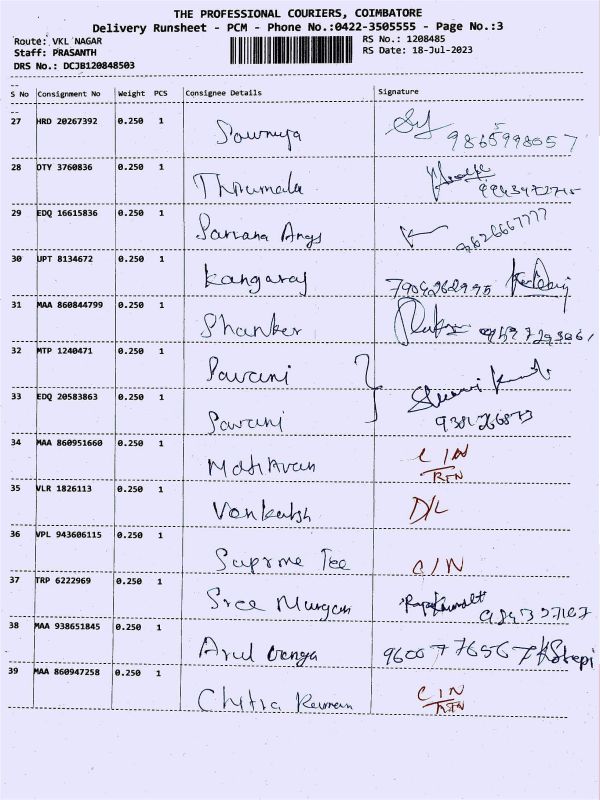 THE PROFESSIONAL COURIERS, COIMBATORE
Delivery Runsheet - PCM - Phone No.:0422-3505555 - Page No.:3
Route: VKL NAGAR RS No.: 1208485
Staff: PRASANTH RS Date: 18-Jul-2023
DRS No.: DCJB120848503
S No Consignment No Weight PCS Consignee Details Signature
27 HRD 20267392 0.250 1 Sowmya
28 DTY 3760836 0.250 1 Thirumala
29 EDQ 16615836 0.250 1 9626667777
30 UPT 8134672 0.250 1 Kangaraj 7904262995
31 MAA 860844799 0.250 1 Shanker
32 MTP 1240471 0.250 1 Pavani
33 EDQ 20583863 0.250 1 Pavani
34 MAA 860951660 0.250 1 C/N
RTN
35 VLR 1826113 0.250 1 Venkatsh D/L
36 VPL 943606115 0.250 1 Suprme Tee C/N
37 TRP 6222969 0.250 1 Sree Murgan
38 MAA 938651845 0.250 1 Arul 9600776567
39 MAA 860947258 0.250 1 Chitra Raman C/N
RTN